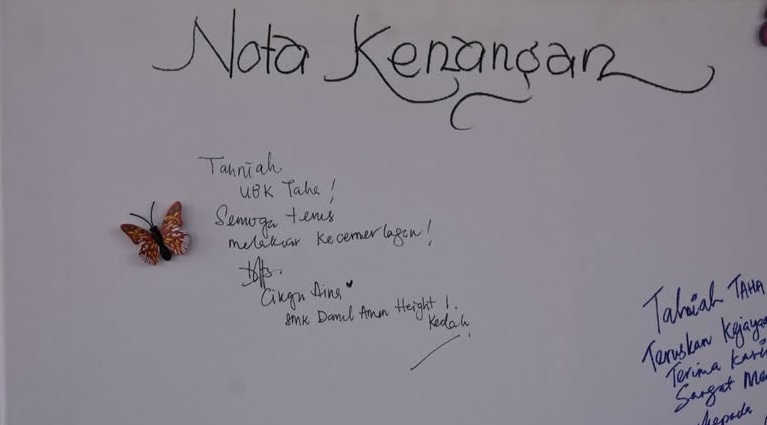 Nota Kenangan
Tahniah
UBK Taha!
Semoga terus
melakar kecemerlagan!
Cikgu Aina
SMK Darul Aman Height 1.
Kedah
Tahniah TAHA
Teruskan Kejaya
Terima Kasi
Sangat Me
kepada